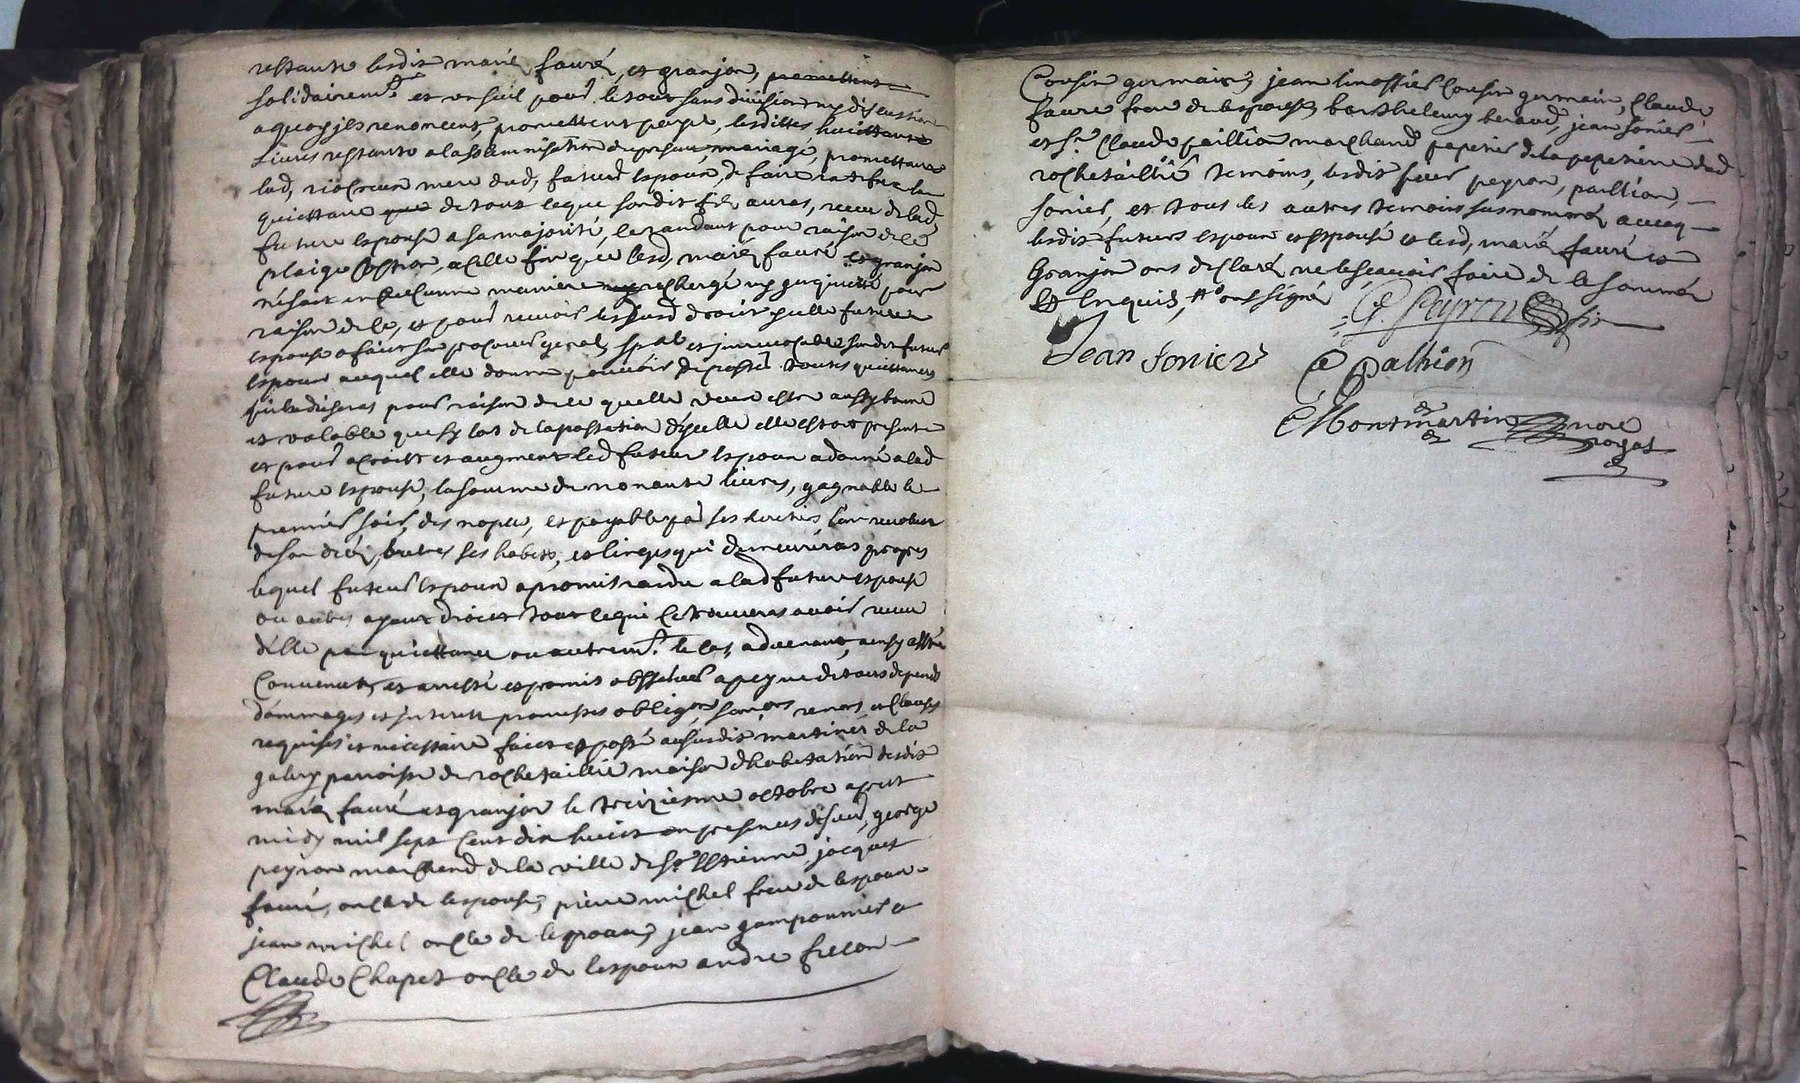 restante lesdit mariés fauré, et granjon, promettent
solidairemt. et un seul pour le tout sans division ny discution
a quoy jls renoncent, promettent payer, lesdittes huittante
Livres restante a la sollemnisation du presant mariage, promettant
lad, mere dud, futeur espoux, de faire
quiettance de tout ceque sondit fils auras, receu de lad
future espouse a sa majorité, le randant pour raison de ce
plaige a celle fin que lesd, mariés fauré et granjon
n'é soit en aucunne maniere ny rechergé ny jnquietté pour
raison de ce, et pour recevoir les susd droits jcelle future
espouse a fait son procureur general spal et jrrevocable sondit futur
Espoux auquel elle donne pouvoir de passer toutes quiettances
pour raison de ce quelle veux estre aussy bonne
et valable que sy lors de la passation d'jcelle elle estoit presente
et pour acroist et augment led futeur Espoux a donné a lad
future Espouse, la somme de nonante livres, gagnable le
premier soir, des nopces, et payable par ses heritiers, l'an revolut
de son déces, outres ses habits, et linges qui demeureras propres
lequel futeur Espoux a promit randre a lad future espouse
ou autres ayant droict tout ce qui ce trouveras avoir receu
d'elle par quiettance ou autremt. le cas advenant, ainsy a esté
Convenut, et arresté et promit observer a peyne de tous depends
dommages et jnterett promesses obligons, soumons renons, et Clauses
requises et necessaire faict et passé au susdit martinet de la
paroisse de rochetaillié maison d'habitation desdit
mariés fauré et granjon le treiziesme octobre apret
midy mil sept Cent dix huict en presences de sieur, george
peyron marchend de la ville de St Estienne, jacques
fauré, oncle de lespouse, pierre michel frere de lespoux
jean michel oncle de lespoux, jean et
Claude Chapes oncle de lespoux andré
Cousin germain, jean limossier Cousin germain, Claude
faure frere de lespouse, barthelemy beraud, jean sonier
et sr. Claude paillion marchand papetier de la papeterie dud
rochetaillié temoins, lesdit sieur peyron, paillion,
sonier, et tous les autres temoins susnommés avecq
lesdit futeurs espoux et espouse et lesd, mariés fauré et
Granjon ons desclaré ne le scavoir faire de ce sommés
et Enquis, ont signé G Peyron
Jean Sonier C Palhion
Montmartin nore
royal